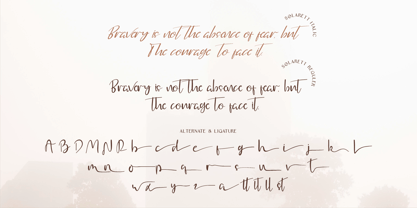 Bravery is not the absence of fear, but
The courage to face it
SOLARETT ITALIC
Bravery is not the absence of fear, but
the courage to face it
SOLARETT REGULER
ALTERNATE & LIGATURE
A B D M N R b c d e f g h i j k l
m n o p q r s u v t
w x y z a tt it ll st